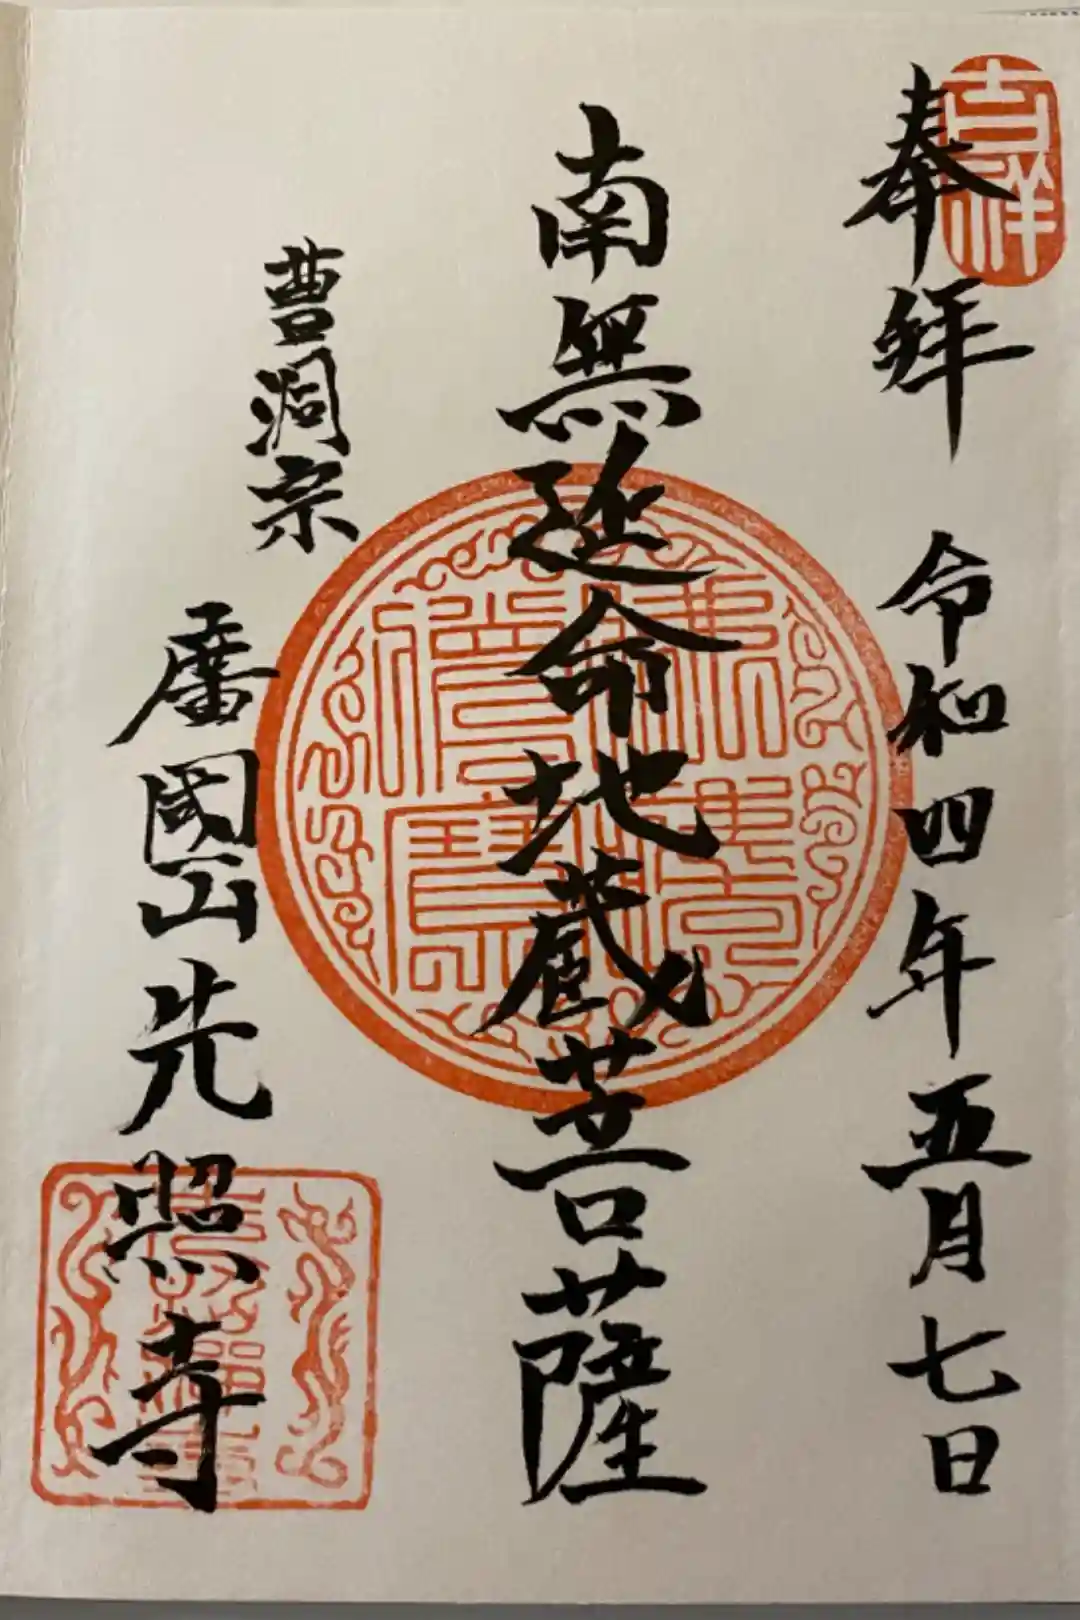 吉祥
奉拜
令和四年五月七日
南無延命地蔵菩薩
佛法僧寶
曹洞宗
廣國山先照寺